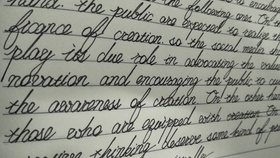 the public are expected to realize th
ficance of creation. so the social media sh
play its due role in advocating the values
nderation and encouraging the public to rais
the awareness of creation. On the other hand
those who are equipped with creation
thinking deserve some kind of